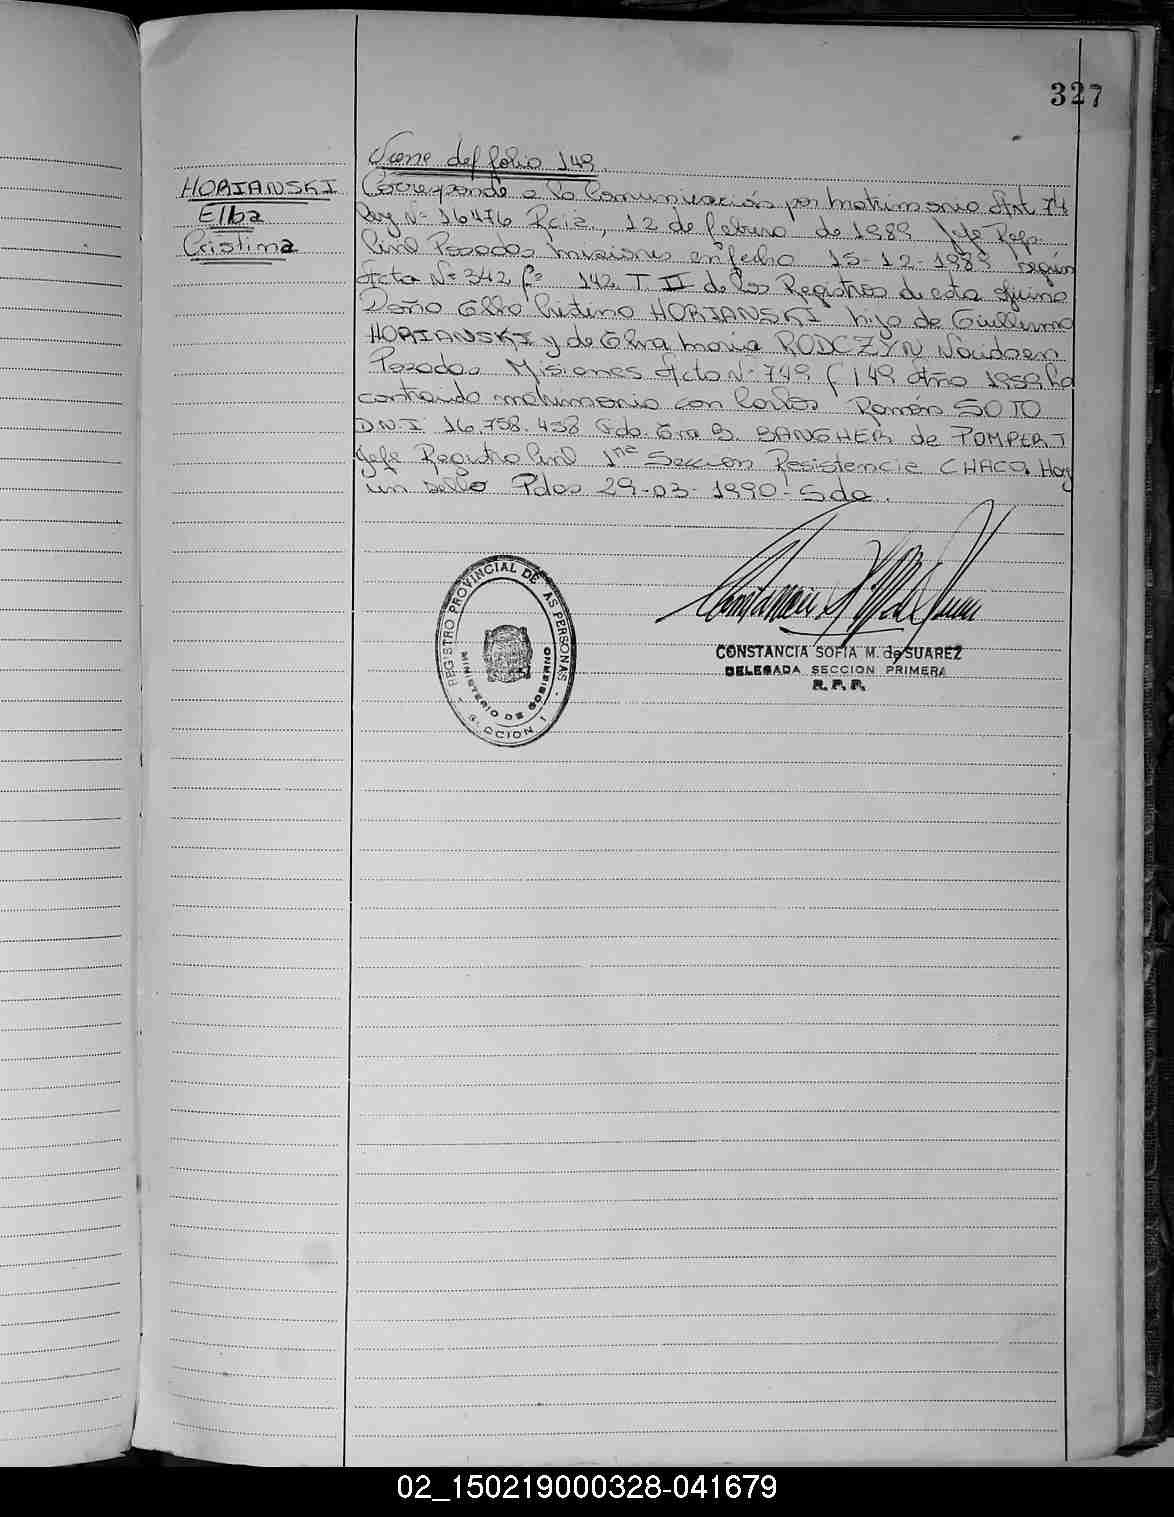 327
Viene del folio 149.
HORIANSKI
Elba
Cristina
Corresponde a la Comunicación por matrimonio Art 74
Ley Nº 16476 Rcia., 12 de febrero de 1989 Jefe Reg.
Civil Posadas Misiones en fecha 15-12-1989 según
Acta Nº 342 fº 142 T. II de los Registros de esta oficina
Doña Elba Cristina HORIANSKI hija de Guillermo
HORIANSKI y de Elva Maria RODCZYN Nacida en
Posadas Misiones Acta Nº 749 f 149 Año 1959 ha
contraido matrimonio con Carlos Ramón SOTO
D.N.I. 16.758.458 Fdo B. SANGHER de POMPERT
Jefe Registro Civil 1ra Sección Resistencia CHACO. Hay
un sello Pdas 29-03-1990-Sda.
REGISTRO PROVINCIAL DE AS PERSONAS
MINISTERIO DE GOBIERNO
SECCION I
CONSTANCIA SOFIA M. de SUAREZ
DELEGADA SECCION PRIMERA
R. P. P.
02_150219000328-041679